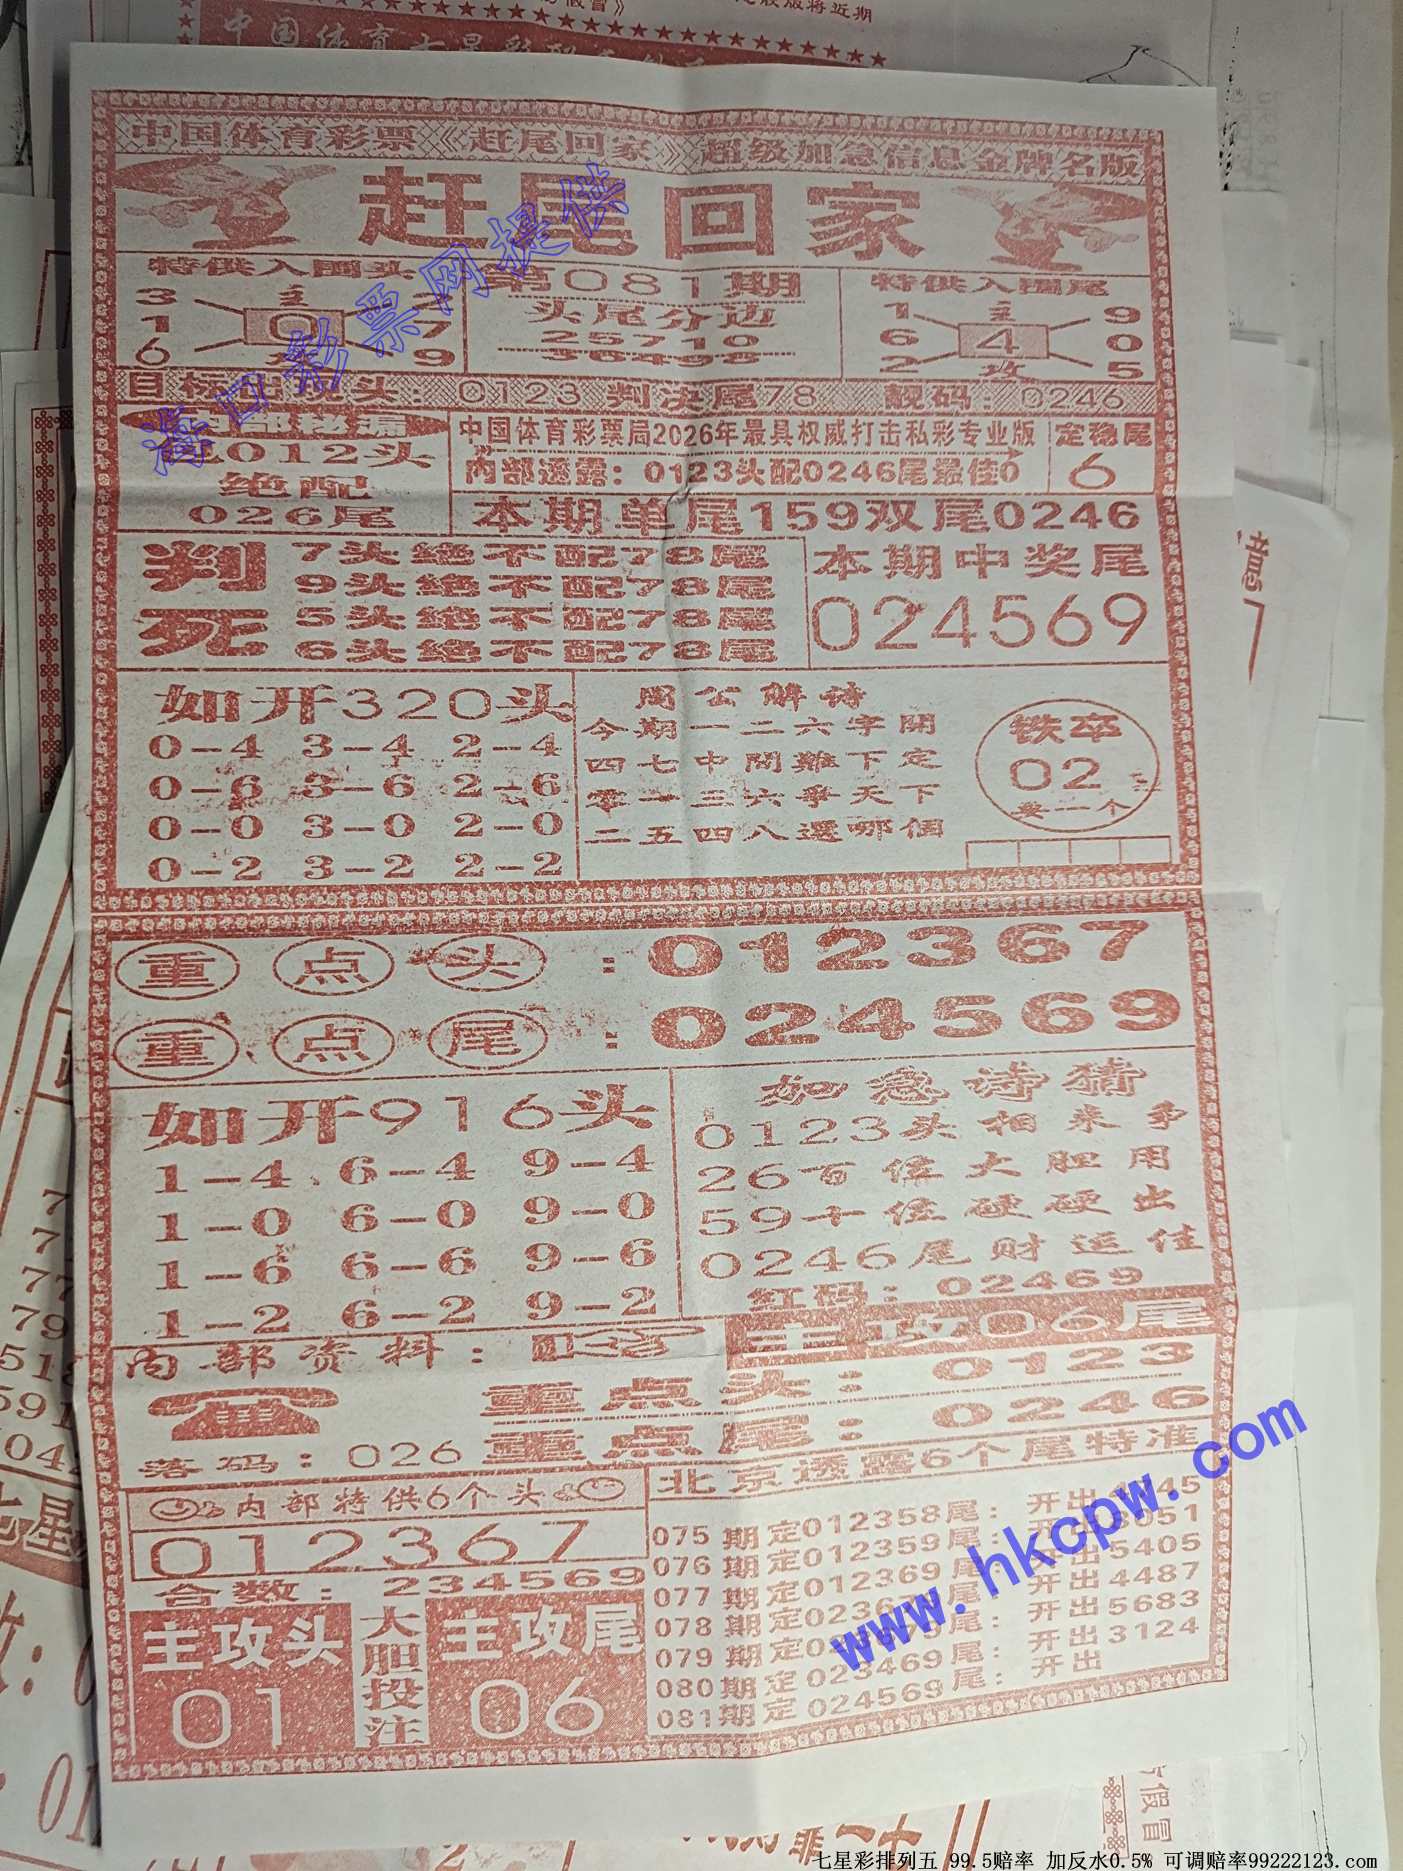 中国体育彩票《赶尾回家》超级加急信息金牌名版
赶尾回家
特供入围头
3 主 2
1 0 7
6 攻 9
第081期
头尾分边
25710
36498
特供入围尾
1 主 9
6 4 0
2 攻 5
头：0123 判决尾78 靓码：0246
012头
绝配
026尾
中国体育彩票局2026年最具权威打击私彩专业版
内部透露：0123头配0246尾最佳0
定稳尾
6
本期单尾159双尾0246
判死
7头绝不配78尾
9头绝不配78尾
5头绝不配78尾
6头绝不配78尾
本期中奖尾
024569
如开320头
0-4 3-4 2-4
0-6 3-6 2-6
0-0 3-0 2-0
0-2 3-2 2-2
周公解诗
今期一二六字開
四七中間難下定
零一三六爭天下
二五四八選哪個
铁卒
02
要一个
重点头：012367
重点尾：024569
如开916头
1-4 6-4 9-4
1-0 6-0 9-0
1-6 6-6 9-6
1-2 6-2 9-2
加急诗猜
0123头相来争
26百位大胆用
59十位硬硬出
0246尾财运佳
红码：02469
内部资料：
主攻06尾
重点头：0123
重点尾：0246
落码：026
内部特供6个头
012367
合数：234569
主攻头
01
大胆投注
主攻尾
06
北京透露6个尾特准
075期定012358尾：开出
076期定012359尾：开出3051
077期定012369尾：开出5405
078期定 尾：开出4487
079期定 尾：开出5683
080期定023469尾：开出3124
081期定024569尾：开出
海口彩票网提供
www.hkcpw.com
七星彩排列五 99.5赔率 加反水0.5% 可调赔率99222123.com